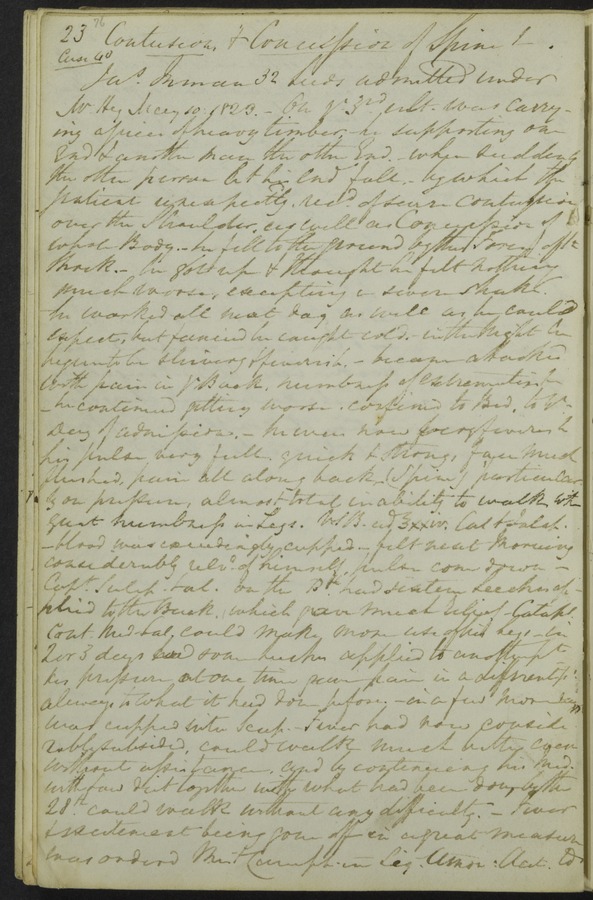 23 76 Contusion, & Concussion of Spine
Case 40
Jas. Inman 32 Leeds admitted under
Mr Hey May 10. 1823. - On ye 3rd ult. was carry-
ing a piece of heavy timber, he supporting one
End & another man the other End. - when suddenly
the other person let his End fall. - by which the
patient unexpectedly recd. a severe Contusion
over the Shoulder, as well as Concussion of
whole Body. - he fell to the ground by the force of the
shock. - he got up & thought he felt nothing
much worse, excepting a severe shake.
he worked all next day as well as he could
expect, but fancied he caught cold. - in the Night he
began to be shivering & feverish. - became attacked
with pain in ye Back, numbness of extremities
- he continued getting worse. confined to Bed, to ye
Day of admission. - he was now very feverish
his pulse very full, quick & strong, face much
flushed, pain all along back (Spine) particular-
ly on pressure, almost total inability to walk with
great numbness in Legs. V.S.B. ad ℥xxiv.
- blood was exceedingly cupped - felt next Morning
considerably relvd. of himself, pulse come down -
on the had sixteen leeches ap-
plied to the Back, which gave much relief -
Cont. Med. could make more use of his legs - in
2 or 3 days had some leeches applied to another pt.
his pressure at one time gave pain in a different pt.
always to what it had done before - in a few more days
was cupped inter Scap. - Fever had now consid-
erably subsided, could walk much better even
without assistance, and by continuing his Med.
with low diet together with what had been done, by the
28th could walk without any difficulty. - Fever
& excitement being gone off in a great measure
was ordered in Liq. Ammon: Acet.